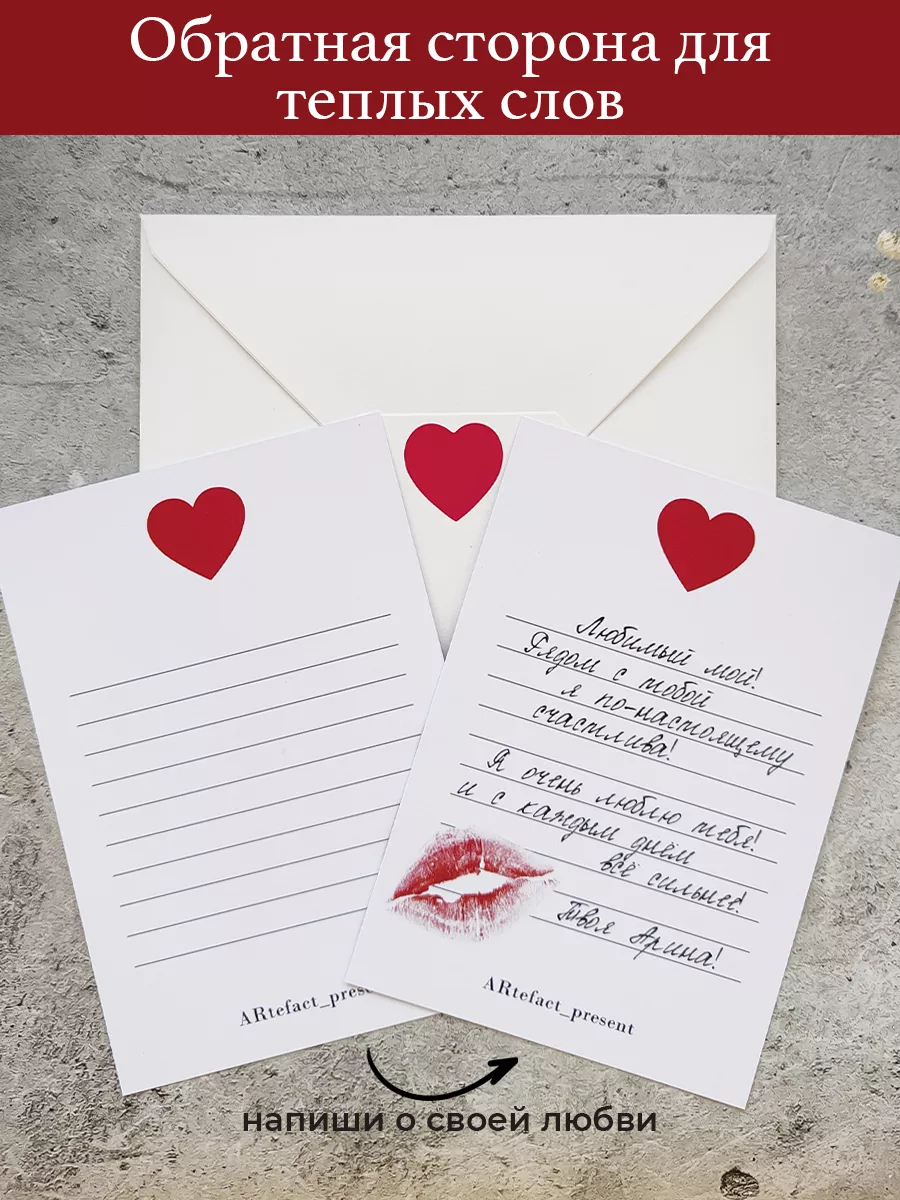 Обратная сторона для
теплых слов
Любимый мой!
Рядом с тобой
я по-настоящему
счастлива!
Я очень люблю тебя!
и с каждым днём
всё сильнее!
Твоя Арина!
ARtefact_prese
ARtefact_present
напиши о своей любви